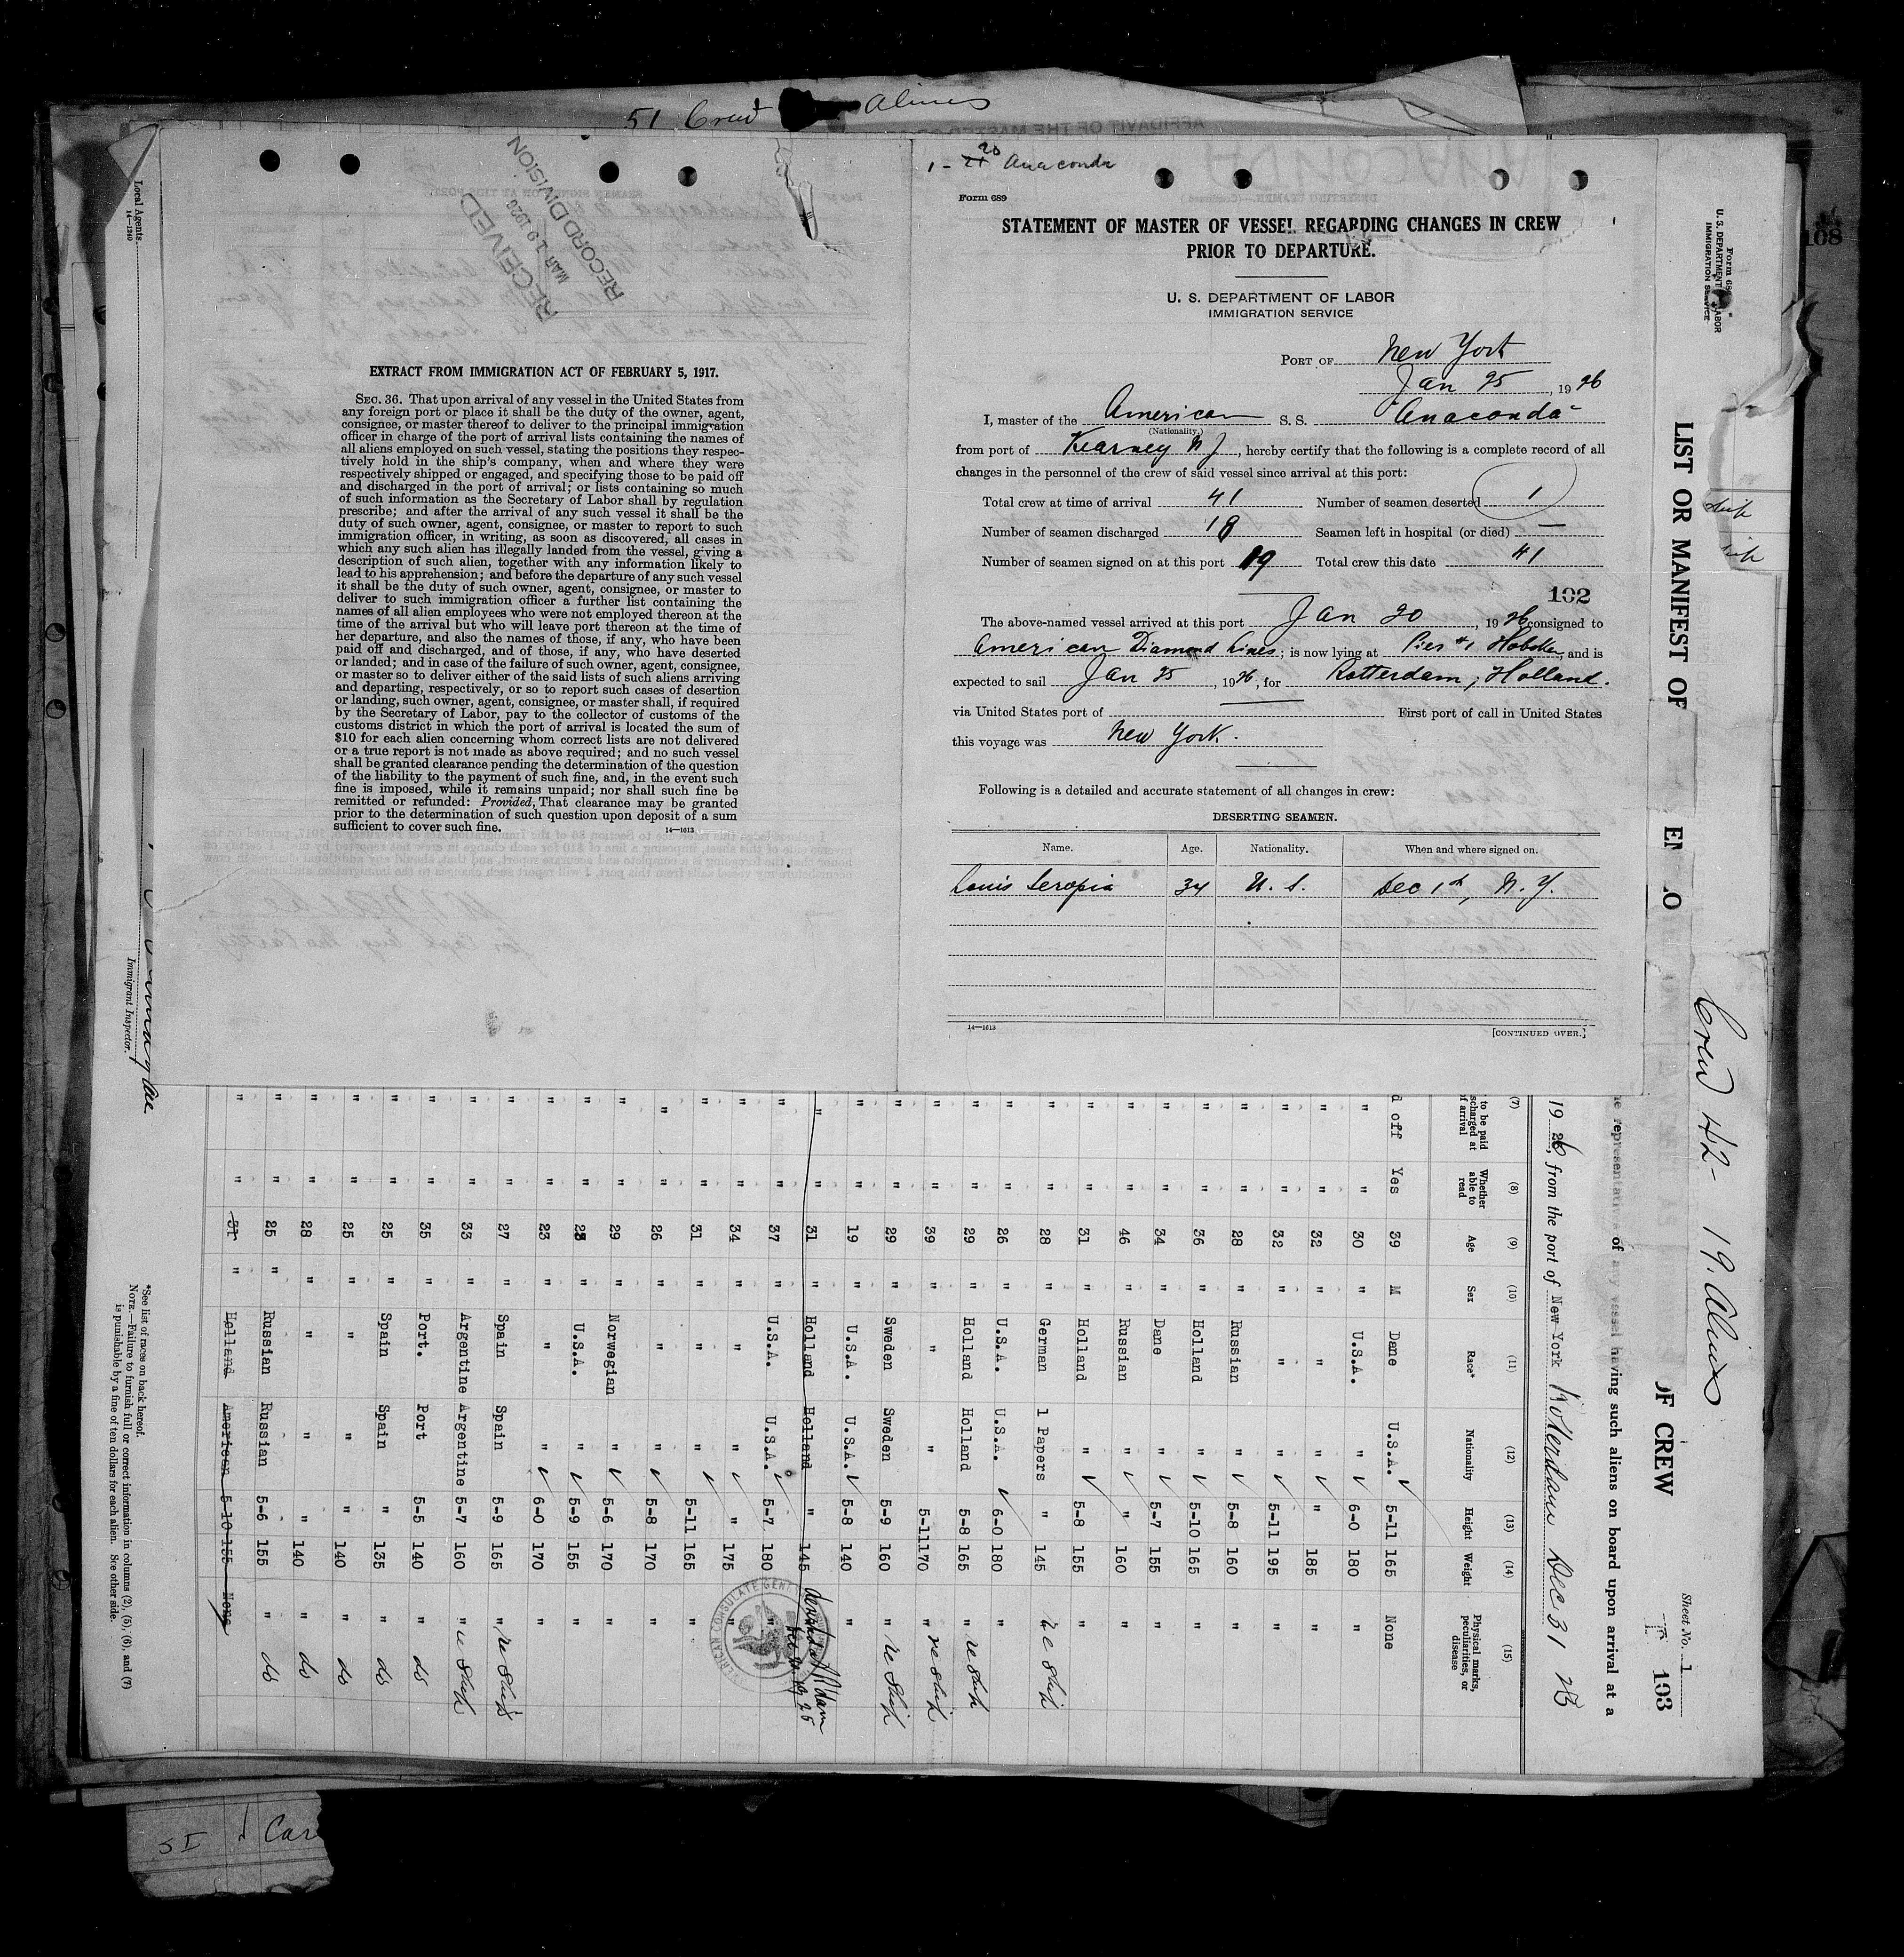 51 Crew Aliens
1 - 20 Anaconda
Form 689
STATEMENT OF MASTER OF VESSEL REGARDING CHANGES IN CREW
PRIOR TO DEPARTURE.
U. S. DEPARTMENT OF LABOR
IMMIGRATION SERVICE
PORT OF New York
Jan 25, 1926
I, master of the American S. S. "Anaconda"
(Nationality.)
from port of Kearney N J, hereby certify that the following is a complete record of all
changes in the personnel of the crew of said vessel since arrival at this port:
Total crew at time of arrival 41 Number of seamen deserted 1
Number of seamen discharged 18 Seamen left in hospital (or died) —
Number of seamen signed on at this port 19 Total crew this date 41
102
The above-named vessel arrived at this port Jan 20, 1926 consigned to
American Diamond Lines; is now lying at Pier #1 Hoboken, and is
expected to sail Jan 25, 1926, for Rotterdam, Holland.
via United States port of First port of call in United States
this voyage was New York.
Following is a detailed and accurate statement of all changes in crew:
DESERTING SEAMEN.
Name. Age. Nationality. When and where signed on.
Louis 34 U. S. Dec 1st, N. Y.
14—1613
[CONTINUED OVER.]
RECEIVED
MAR 19 1926
RECORD DIVISION
EXTRACT FROM IMMIGRATION ACT OF FEBRUARY 5, 1917.
SEC. 36. That upon arrival of any vessel in the United States from
any foreign port or place it shall be the duty of the owner, agent,
consignee, or master thereof to deliver to the principal immigration
officer in charge of the port of arrival lists containing the names of
all aliens employed on such vessel, stating the positions they respec-
tively hold in the ship's company, when and where they were
respectively shipped or engaged, and specifying those to be paid off
and discharged in the port of arrival; or lists containing so much
of such information as the Secretary of Labor shall by regulation
prescribe; and after the arrival of any such vessel it shall be the
duty of such owner, agent, consignee, or master to report to such
immigration officer, in writing, as soon as discovered, all cases in
which any such alien has illegally landed from the vessel, giving a
description of such alien, together with any information likely to
lead to his apprehension; and before the departure of any such vessel
it shall be the duty of such owner, agent, consignee, or master to
deliver to such immigration officer a further list containing the
names of all alien employees who were not employed thereon at the
time of the arrival but who will leave port thereon at the time of
her departure, and also the names of those, if any, who have been
paid off and discharged, and of those, if any, who have deserted
or landed; and in case of the failure of such owner, agent, consignee,
or master so to deliver either of the said lists of such aliens arriving
and departing, respectively, or so to report such cases of desertion
or landing, such owner, agent, consignee, or master shall, if required
by the Secretary of Labor, pay to the collector of customs of the
customs district in which the port of arrival is located the sum of
$10 for each alien concerning whom correct lists are not delivered
or a true report is not made as above required; and no such vessel
shall be granted clearance pending the determination of the question
of the liability to the payment of such fine, and, in the event such
fine is imposed, while it remains unpaid; nor shall such fine be
remitted or refunded: Provided, That clearance may be granted
prior to the determination of such question upon deposit of a sum
sufficient to cover such fine.
14—1613
108
Form 689
U. S. DEPARTMENT OF LABOR
IMMIGRATION SERVICE
Crew 42 - 19. Aliens
Sheet No. 1
103
LIST OR MANIFEST OF OF CREW
representatives of any vessel having such aliens on board upon arrival at a
1926, from the port of New York Rotterdam Dec 31 25
(7) (8) (9) (10) (11) (12) (13) (14) (15)
to be paid
Whether able to read
Age
Sex
Race*
Nationality
Height
Weight
Physical marks, peculiarities, or disease
d off Yes 39 M Dane U.S.A. 5-11 165 None
" " 30 " U.S.A. " 6-0 180 "
" " 32 " " " " 185 "
" " 32 " " " 5-11 195 "
" " 28 " Russian " 5-8 160 "
" " 36 " Holland " 5-10 165 "
" " 34 " Dane " 5-7 155 "
" " 46 " Russian " " 160 "
" " 31 " Holland " 5-8 155 "
" " 28 " German 1 Papers " 145 " re ship
" " 26 " U.S.A. U.S.A. 6-0 180 "
" " 29 " Holland Holland 5-8 165 " re ship
" " 39 " " " 5-11 170 " re ship
" " 29 " Sweden Sweden 5-9 160 " re ship
" " 19 " U.S.A. U.S.A. 5-8 140 "
" " 31 " Holland Holland " 145
" " 37 " U.S.A. U.S.A. 5-7 180 "
" " 34 " " " " 175 "
" " 31 " " " 5-11 165 "
" " 26 " " " 5-8 170 "
" " 29 " Norwegian " 5-6 170 "
" " 23 " U.S.A. " 5-9 155 "
" " 23 " " " 6-0 170 "
" " 27 " Spain Spain 5-9 165 " re ship
" " 33 " Argentine Argentine 5-7 160 " re ship
" " 35 " Port. Port 5-5 140 " do
" " 25 " Spain Spain " 135 " do
" " 25 " " " " 140 " do
" " 28 " " " " 140 " do
" " 25 " Russian Russian 5-6 155 " do
" " 31 " Holland American 5-10 155 None
AMERICAN CONSULATE GENERAL
*See list of races on back hereof.
NOTE.—Failure to furnish full or correct information in columns (2), (5), (6), and (7)
is punishable by a fine of ten dollars for each alien. See other side.
Local Agents
14—1240
Immigrant Inspector.
SI